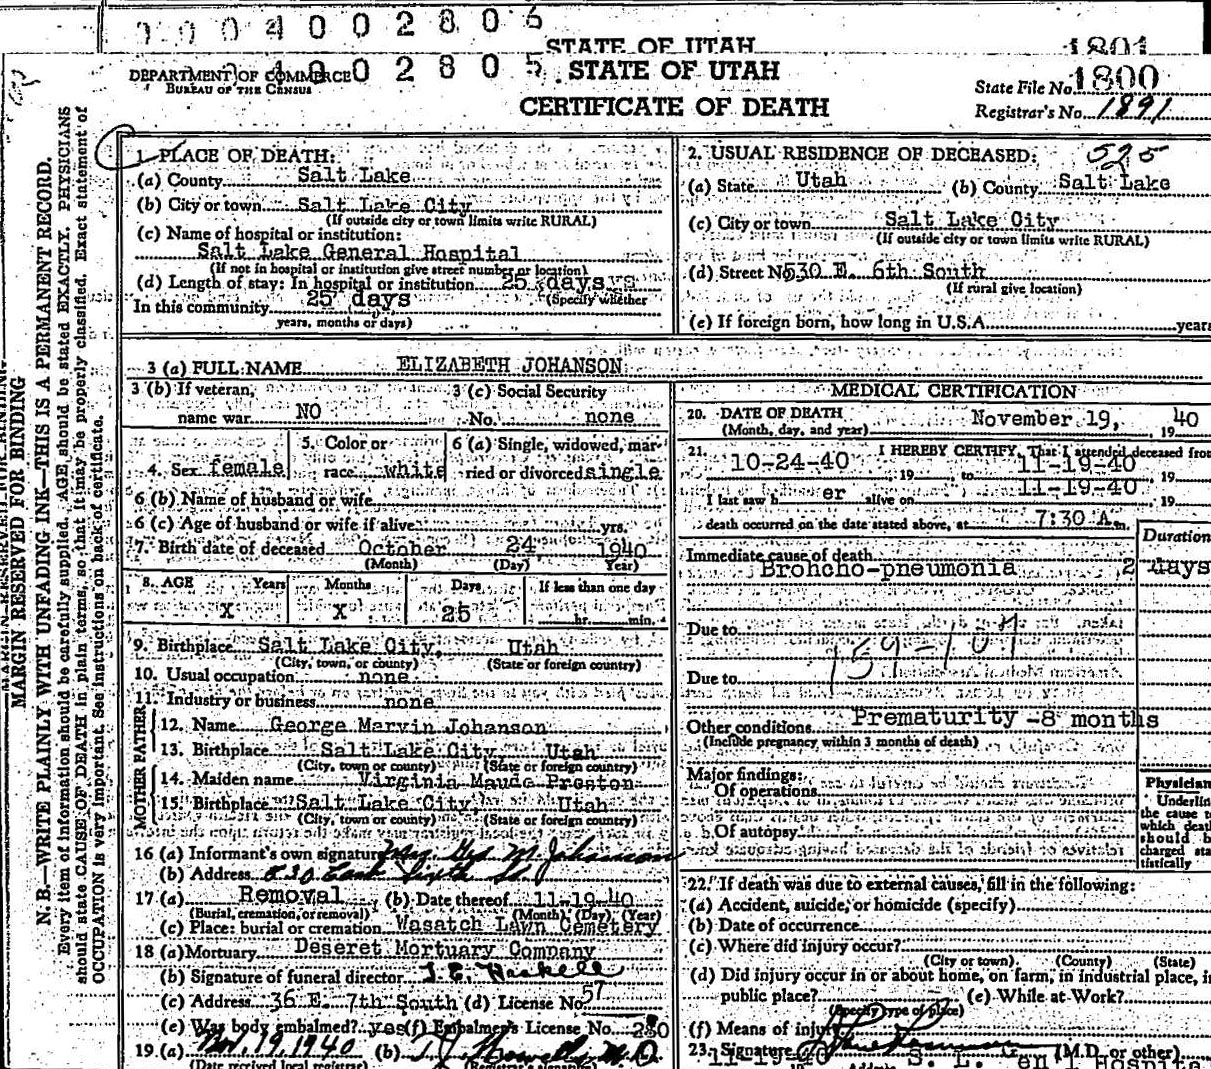 0 0 0 4 0 0 2 8 0 6
STATE OF UTAH
1801
DEPARTMENT OF COMMERCE
BUREAU OF THE CENSUS
4 0 0 2 8 0 5
STATE OF UTAH
CERTIFICATE OF DEATH
State File No. 1800
Registrar's No. 1891
MARGIN RESERVED FOR BINDING
N. B.—WRITE PLAINLY WITH UNFADING INK—THIS IS A PERMANENT RECORD.
Every item of information should be carefully supplied. AGE should be stated EXACTLY. PHYSICIANS
should state CAUSE OF DEATH in plain terms, so that it may be properly classified. Exact statement of
OCCUPATION is very important. See instructions on back of certificate.
1. PLACE OF DEATH:
(a) County Salt Lake
(b) City or town Salt Lake City
(If outside city or town limits write RURAL)
(c) Name of hospital or institution:
Salt Lake General Hospital
(If not in hospital or institution give street number or location)
(d) Length of stay: In hospital or institution 25 days
(Specify whether
In this community 25 days
years, months or days)
2. USUAL RESIDENCE OF DECEASED: 525
(a) State Utah (b) County Salt Lake
(c) City or town Salt Lake City
(If outside city or town limits write RURAL)
(d) Street No. 530 E. 6th South
(If rural give location)
(e) If foreign born, how long in U.S.A. years
3 (a) FULL NAME ELIZABETH JOHANSON
3 (b) If veteran,
name war NO
3 (c) Social Security
No. none
4. Sex female
5. Color or
race white
6 (a) Single, widowed, mar-
ried or divorced single
6 (b) Name of husband or wife
6 (c) Age of husband or wife if alive yrs.
7. Birth date of deceased October 24 1940
(Month) (Day) Year)
8. AGE Years Months Days If less than one day
X X 25 hr. min.
9. Birthplace Salt Lake City, Utah
(City, town, or county) (State or foreign country)
10. Usual occupation none
11. Industry or business none
FATHER
12. Name George Marvin Johanson
13. Birthplace Salt Lake City Utah
(City, town or county) (State or foreign country)
MOTHER
14. Maiden name Virginia Maude Preston
15. Birthplace Salt Lake City Utah
(City, town or county) (State or foreign country)
16 (a) Informant's own signature Mrs. Geo M. Johanson
(b) Address 530 East Sixth So
17 (a) Removal (b) Date thereof 11-19-40
(Burial, cremation, or removal) (Month) (Day) (Year)
(c) Place: burial or cremation Wasatch Lawn Cemetery
18 (a) Mortuary Deseret Mortuary Company
(b) Signature of funeral director
(c) Address 36 E. 7th South (d) License No. 57
(e) Was body embalmed? yes (f) Embalmer's License No. 280
19. (a) Nov. 19, 1940 (b) M.D.
(Date received local registrar) (Registrar's signature)
MEDICAL CERTIFICATION
20. DATE OF DEATH November 19, 1940
(Month, day, and year)
21. I HEREBY CERTIFY, That I attended deceased from
10-24-40, 19 , to 11-19-40, 19
I last saw h er alive on 11-19-40, 19
death occurred on the date stated above, at 7:30 A m.
Duration
Immediate cause of death
Broncho-pneumonia 2 days
Due to
159-107
Due to
Other conditions Prematurity -8 months
(Include pregnancy within 3 months of death)
Major findings:
Of operations
Of autopsy
Physician
Underline
the cause to
which death
should be
charged sta-
tistically
22. If death was due to external causes, fill in the following:
(a) Accident, suicide, or homicide (specify)
(b) Date of occurrence
(c) Where did injury occur?
(City or town) (County) (State)
(d) Did injury occur in or about home, on farm, in industrial place, in
public place? (e) While at Work?
(Specify type of place)
(f) Means of injury
23. Signature (M.D. or other)
11-19-40 Address S. L. Gen'l Hospital